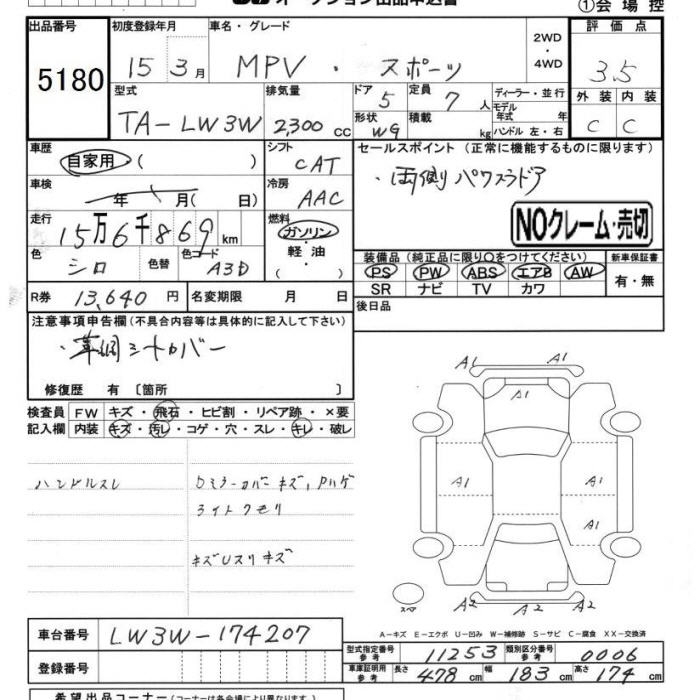 オークション出品申込書
①会場控
出品番号 初度登録年月 車名・グレード 2WD ・ 4WD 評価点
5180 15 3月 MPV ・ スポーツ 3.5
型式 排気量 ドア 定員 ディーラー・並行
TA-LW3W 2,300 CC 5 7人 モデル年式 年 外装 内装
形状 積載 C C
W9 kg ハンドル 左・右
車歴 シフト セールスポイント (正常に機能するものに限ります)
自家用 ( ) CAT ・両側パワスラドア
車検 冷房
年 月( 日) AAC
NOクレーム・売切
走行 燃料
15万6千869km ガソリン・軽油・( )
色 色替 色コード 装備品 (純正品に限り○をつけてください) 新車保証書
シロ A3D PS PW ABS エアB AW 有・無
SR ナビ TV カワ
R券 13,640円 名変期限 月 日 後日品
注意事項申告欄 (不具合内容等は具体的に記入して下さい)
・革調シートカバー
修復歴 有 [箇所 ]
検査員 FW キズ・飛石・ヒビ割・リペア跡・×要
記入欄 内装 キズ・汚レ・コゲ・穴・スレ・キレ・破レ
A1 A1
A1
ハンドルスレ Dミラーカバーキズ,Pハゲ
A1 A1
ライトクモリ
A1
キズUスリキズ
スペア A2 A2
A-キズ E-エクボ U-凹み W-補修跡 S-サビ C-腐食 XX-交換済
車台番号 LW3W-174207
型式指定番号 参考 11253 類別区分番号 参考 0006
登録番号
車庫証明用 参考 長さ 478cm 幅 183cm 高さ 174cm
希望出品コーナー (コーナーは各会場により異なります)